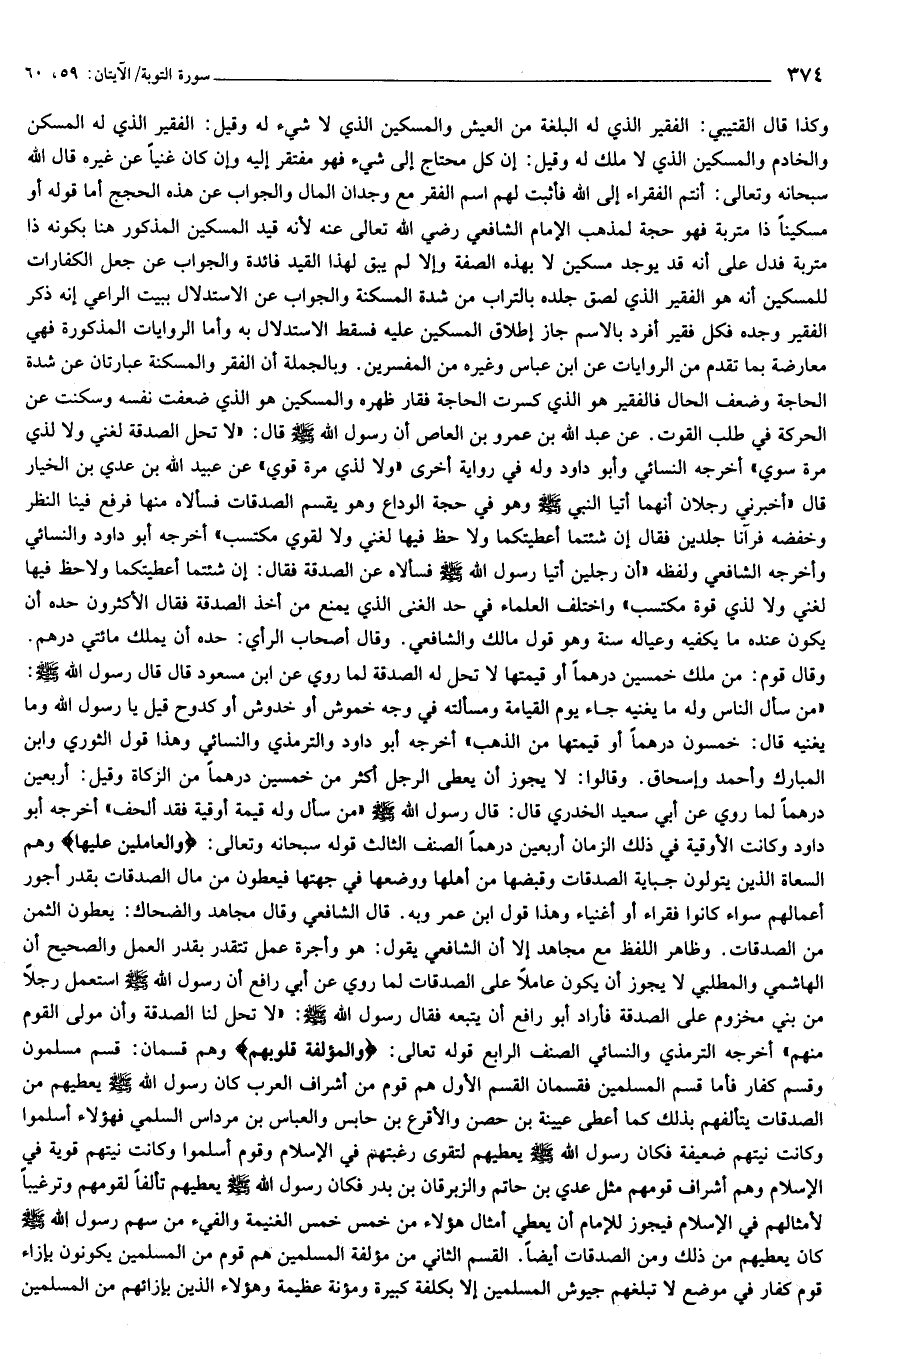 ٣٧٤ سورة التوبة/ الآيتان: ٥٩، ٦٠
وكذا قال القتيبي: الفقير الذي له البلغة من العيش والمسكين الذي لا شيء له وقيل: الفقير الذي له المسكن
والخادم والمسكين الذي لا ملك له وقيل: إن كل محتاج إلى شيء فهو مفتقر إليه وإن كان غنياً عن غيره قال الله
سبحانه وتعالى: أنتم الفقراء إلى الله فأثبت لهم اسم الفقر مع وجدان المال والجواب عن هذه الحجج أما قوله أو
مسكيناً ذا متربة فهو حجة لمذهب الإمام الشافعي رضي الله تعالى عنه لأنه قيد المسكين المذكور هنا بكونه ذا
متربة فدل على أنه قد يوجد مسكين لا بهذه الصفة وإلا لم يبق لهذا القيد فائدة والجواب عن جعل الكفارات
للمسكين أنه هو الفقير الذي لصق جلده بالتراب من شدة المسكنة والجواب عن الاستدلال ببيت الراعي إنه ذكر
الفقير وحده فكل فقير أفرد بالاسم جاز إطلاق المسكين عليه فسقط الاستدلال به وأما الروايات المذكورة فهي
معارضة بما تقدم من الروايات عن ابن عباس وغيره من المفسرين. وبالجملة أن الفقر والمسكنة عبارتان عن شدة
الحاجة وضعف الحال فالفقير هو الذي كسرت الحاجة فقار ظهره والمسكين هو الذي ضعفت نفسه وسكنت عن
الحركة في طلب القوت. عن عبد الله بن عمرو بن العاص أن رسول الله ﷺ قال: «لا تحل الصدقة لغني ولا لذي
مرة سوي» أخرجه النسائي وأبو داود وله في رواية أخرى «ولا لذي مرة قوي» عن عبيد الله بن عدي بن الخيار
قال «أخبرني رجلان أنهما أتيا النبي ﷺ وهو في حجة الوداع وهو يقسم الصدقات فسألاه منها فرفع فينا النظر
وخفضه فرآنا جلدين فقال إن شئتما أعطيتكما ولا حظ فيها لغني ولا لقوي مكتسب» أخرجه أبو داود والنسائي
وأخرجه الشافعي ولفظه «أن رجلين أتيا رسول الله ﷺ فسألاه عن الصدقة فقال: إن شئتما أعطيتكما ولاحظ فيها
لغني ولا لذي قوة مكتسب» واختلف العلماء في حد الغنى الذي يمنع من أخذ الصدقة فقال الأكثرون حده أن
يكون عنده ما يكفيه وعياله سنة وهو قول مالك والشافعي. وقال أصحاب الرأي: حده أن يملك مائتي درهم.
وقال قوم: من ملك خمسين درهماً أو قيمتها لا تحل له الصدقة لما روي عن ابن مسعود قال قال رسول الله ﷺ:
«من سأل الناس وله ما يغنيه جاء يوم القيامة ومسألته في وجه خموش أو خدوش أو كدوح قيل يا رسول الله وما
يغنيه قال: خمسون درهماً أو قيمتها من الذهب» أخرجه أبو داود والترمذي والنسائي وهذا قول الثوري وابن
المبارك وأحمد وإسحاق. وقالوا: لا يجوز أن يعطى الرجل أكثر من خمسين درهماً من الزكاة وقيل: أربعين
درهماً لما روي عن أبي سعيد الخدري قال: قال رسول الله ﷺ «من سأل وله قيمة أوقية فقد ألحف» أخرجه أبو
داود وكانت الأوقية في ذلك الزمان أربعين درهماً الصنف الثالث قوله سبحانه وتعالى: ﴿والعاملين عليها﴾ وهم
السعاة الذين يتولون جباية الصدقات وقبضها من أهلها ووضعها في جهتها فيعطون من مال الصدقات بقدر أجور
أعمالهم سواء كانوا فقراء أو أغنياء وهذا قول ابن عمر وبه. قال الشافعي وقال مجاهد والضحاك: يعطون الثمن
من الصدقات. وظاهر اللفظ مع مجاهد إلا أن الشافعي يقول: هو وأجرة عمل تتقدر بقدر العمل والصحيح أن
الهاشمي والمطلبي لا يجوز أن يكون عاملاً على الصدقات لما روي عن أبي رافع أن رسول الله ﷺ استعمل رجلاً
من بني مخزوم على الصدقة فأراد أبو رافع أن يتبعه فقال رسول الله ﷺ: «لا تحل لنا الصدقة وأن مولى القوم
منهم» أخرجه الترمذي والنسائي الصنف الرابع قوله تعالى: ﴿والمؤلفة قلوبهم﴾ وهم قسمان: قسم مسلمون
وقسم كفار فأما قسم المسلمين فقسمان القسم الأول هم قوم من أشراف العرب كان رسول الله ﷺ يعطيهم من
الصدقات يتألفهم بذلك كما أعطى عيينة بن حصن والأقرع بن حابس والعباس بن مرداس السلمي فهؤلاء أسلموا
وكانت نيتهم ضعيفة فكان رسول الله ﷺ يعطيهم لتقوى رغبتهم في الإسلام وقوم أسلموا وكانت نيتهم قوية في
الإسلام وهم أشراف قومهم مثل عدي بن حاتم والزبرقان بن بدر فكان رسول الله ﷺ يعطيهم تألفاً لقومهم وترغيباً
لأمثالهم في الإسلام فيجوز للإمام أن يعطي أمثال هؤلاء من خمس خمس الغنيمة والفيء من سهم رسول الله ﷺ
كان يعطيهم من ذلك ومن الصدقات أيضاً. القسم الثاني من مؤلفة المسلمين هم قوم من المسلمين يكونون بإزاء
قوم كفار في موضع لا تبلغهم جيوش المسلمين إلا بكلفة كبيرة ومؤنة عظيمة وهؤلاء الذين بإزائهم من المسلمين